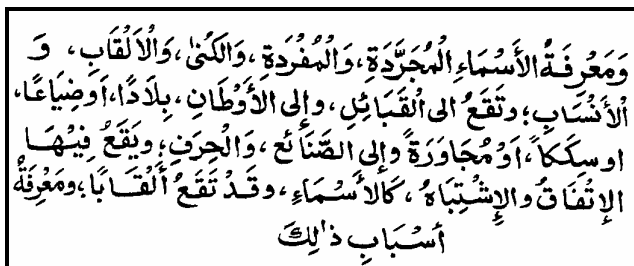 وَمَعْرِفَةُ الأَسْمَاءِ الْمُجَرَّدَةِ، وَالْمُفْرَدَةِ، وَالْكُنىٰ، وَالْاَلْقَابِ، وَ
اْلأَنْسَابِ؛ وتَقَعُ الى الْقَبَائِلِ، وإلى الأَوْطَانِ، بِلَادًا، اَوضِيَاعًا،
او سِكَكاً، اَوْ مُجَاوَرَةً وإلى الصَّنَائعِ، وَالْحِرَفِ؛ ويَقَعُ فِيْهَا
الإتْفَاقُ والإِشْتِبَاهُ، كَالأسْمَاءِ، وقَدْ تَقَعُ أَلْقَابًا؛ ومَعْرِفَةُ
اَسْبَابِ ذٰلِكَ